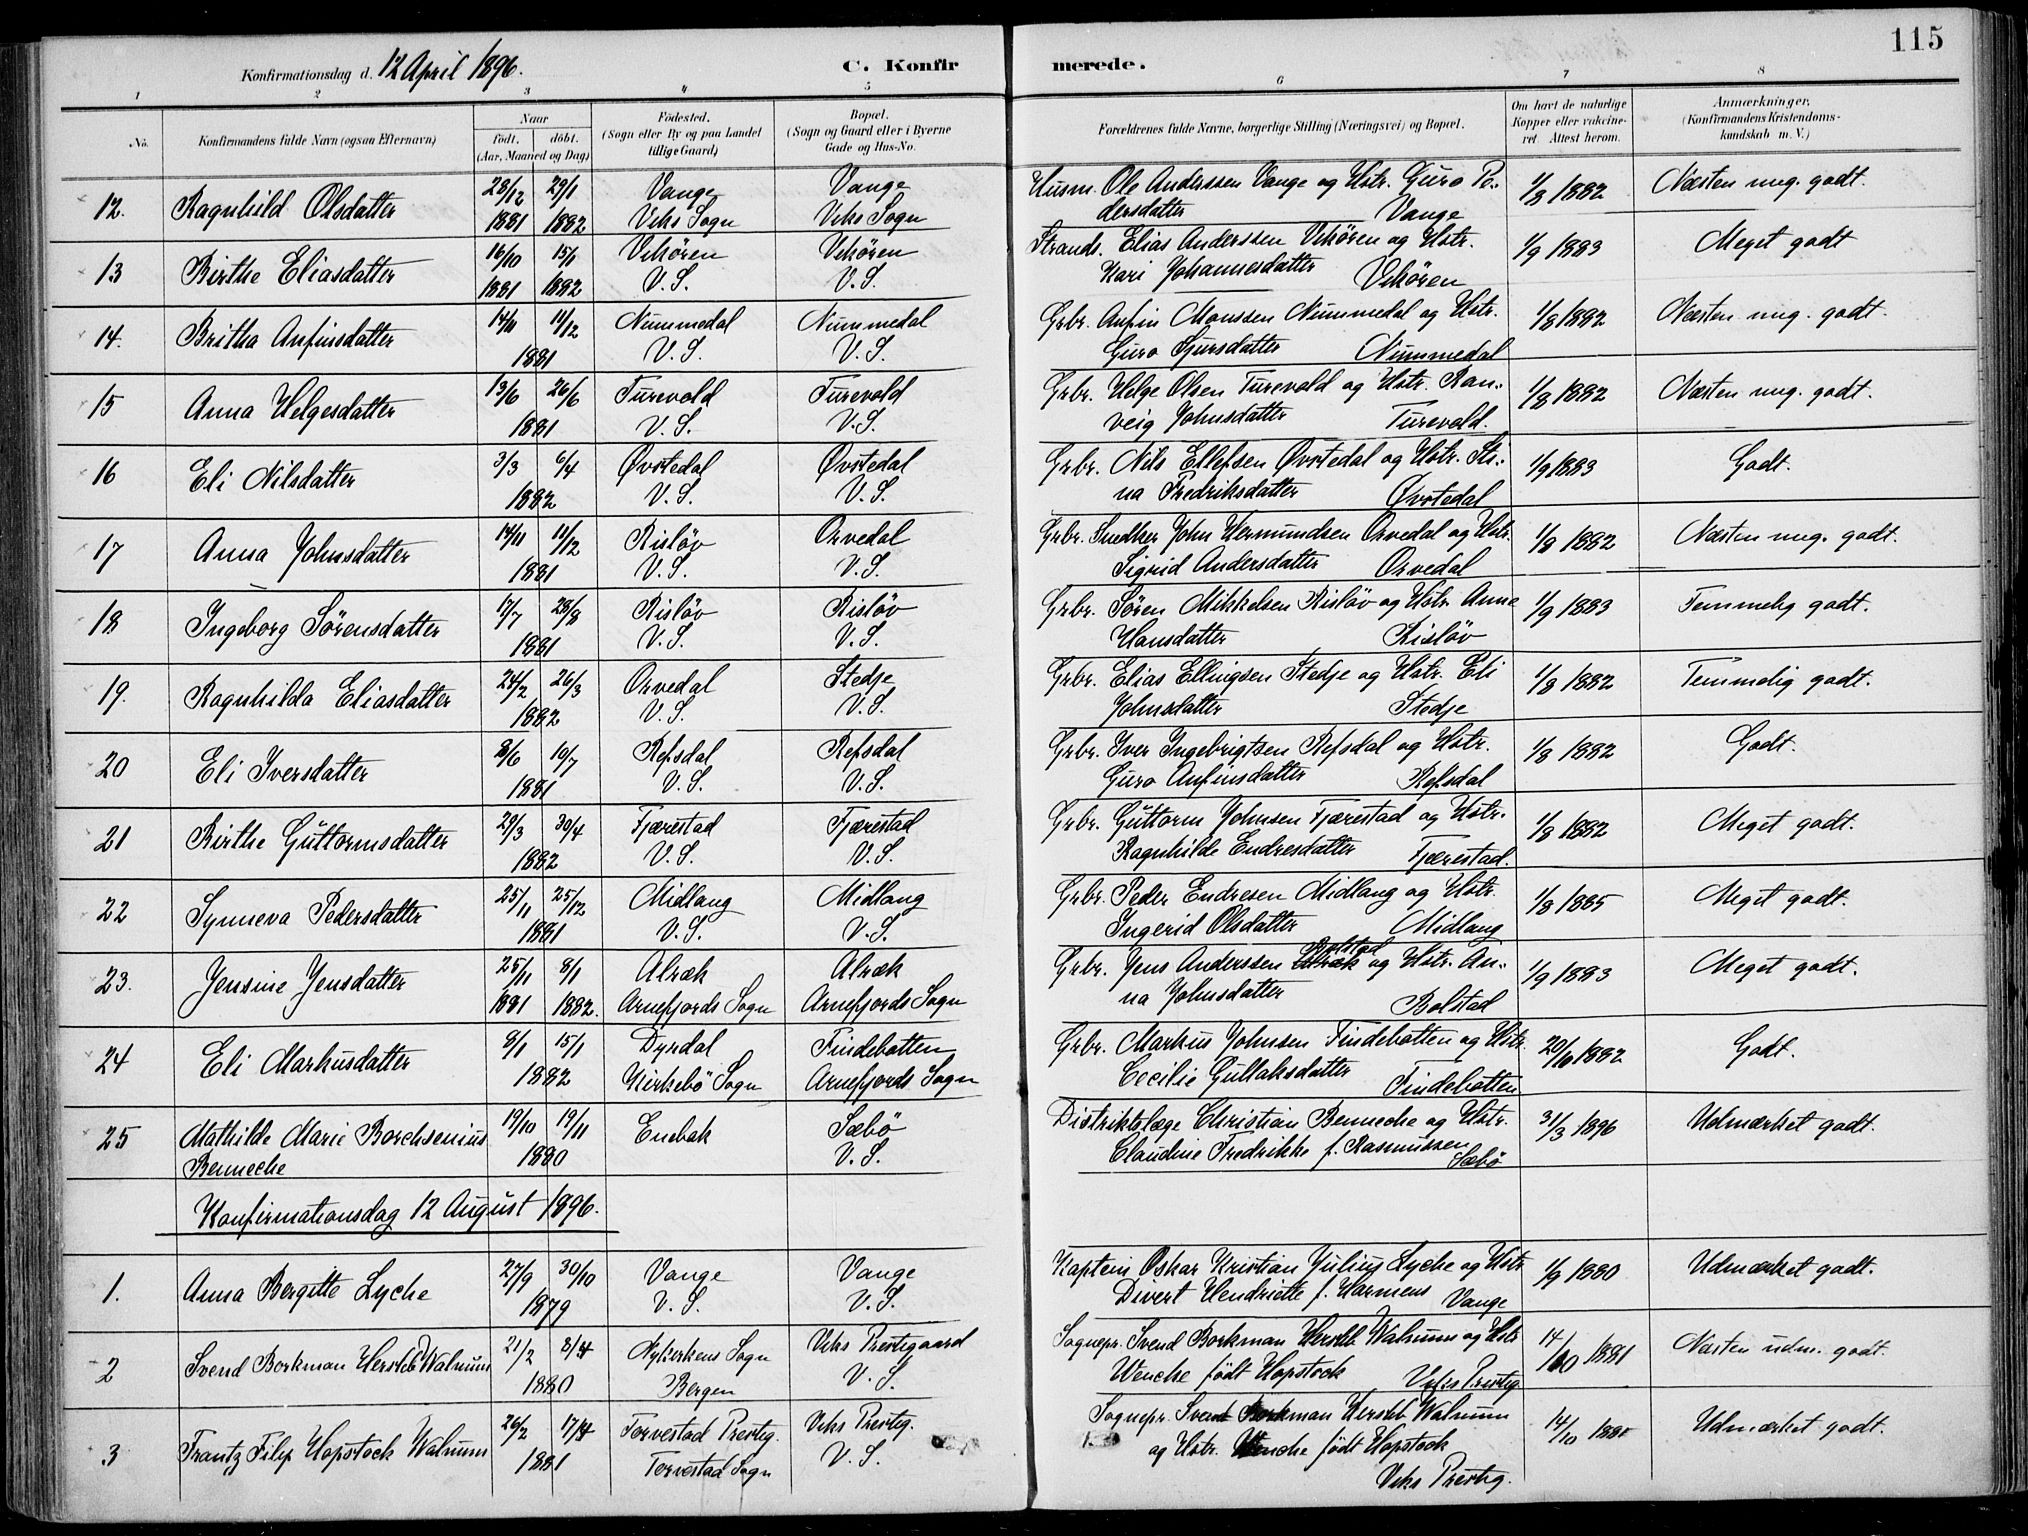 115
Konfirmationsdag d. 12 April 1896.
C. Konfirmerede.
1 2 3 4 5 6 7 8
No. | Konfirmandens fulde Navn (ogsaa Efternavn) | Naar födt. döbt. (Aar, Maaned og Dag) | Födested. (Sogn eller By og paa Landet tillige Gaard) | Bopæl. (Sogn og Gaard eller i Byerne Gade og Hus-No. | Forældrenes fulde Navne, borgerlige Stilling (Næringsvei) og Bopæl. | Om havt de naturlige Kopper eller vakcineret. Attest herom. | Anmærkninger, (Konfirmandens Kristendomskundskab m. V.)
12. Ragnhild Olsdatter 28/12 29/1 Vange Vange Husm. Ole Anderssen Vange og Hstr. Guro Pe- 1/8 1882 Næsten meg. godt.
1881 1882 Viks Sogn Viks Sogn dersdatter Vange
13 Birthe Eliasdatter 16/10 15/1 Vikören Vikören Strands. Elias Anderssen Vikören og Hstr. 1/9 1883 Meget godt
1881 1882 V. S. V. S. Kari Johannesdatter Vikören
14. Britha Anfinsdatter 14/11 11/12 Nummedal Nummedal Grbr. Anfin Monssen Nummedal og Hstr. 1/8 1882 Næsten meg. godt.
1881 V. S. V. S. Guro Sjursdatter Nummedal
15 Anna Helgesdatter 13/6 26/6 Turevold Turevold Grbr. Helge Olsen Turevold og Hstr. Ran- 1/8 1882 Næsten meg. godt.
1881 V. S. V. S. veig Johnsdatter Turevold.
16 Eli Nilsdatter 3/3 6/4 Øvstedal Øvstedal Grbr. Nils Ellefsen Øvstedal og Hstr. Sti- 1/9 1883 Godt.
1882 V. S. V. S. na Fredriksdatter Øvstedal
17 Anna Johnsdatter 14/11 11/12 Risløv Orvedal Grbr. Snedker John Hermundsen Orvedal og Hstr. 1/8 1882 Næsten meg. godt.
1881 V. S. V. S. Sigrid Andersdatter Orvedal
18 Ingeborg Sörensdatter 17/7 28/8 Risløv Risløv Grbr. Sören Mikkelsen Risløv og Hstr. Anne 1/9 1883 Temmelig godt.
1881 V. S. V. S. Hansdatter Risløv
19. Ragnhilda Eliasdatter 24/2 26/3 Orvedal Stedje Grbr. Elias Ellingsen Stedje og Hstr. Eli 1/8 1882 Temmelig godt.
1882 V. S. V. S. Johnsdatter Stedje
20 Eli Iversdatter 8/6 10/7 Refsdal Refsdal Grbr. Iver Ingebrigtsen Refsdal og Hstr. 1/8 1882 Godt.
1881 V. S. V. S. Guro Anfinsdatter Refsdal
21 Birthe Guttormsdatter 29/3 30/4 Fjærestad Fjærestad Grbr. Guttorm Johnsen Fjærestad og Hstr. 1/8 1882 Meget godt.
1882 V. S. V. S. Ragnhilde Endresdatter Fjærestad.
22 Synneva Pedersdatter 25/11 25/12 Midlang Midlang Grbr. Peder Endresen Midlang og Hstr. 1/8 1885 Meget godt.
1881 V. S. V. S. Ingerid Olsdatter Midlang
23. Jensine Jensdatter 25/11 8/1 Alræk Alræk Grbr. Jens Anderssen Bolstad og Hstr. An- 1/9 1883 Meget godt.
1881 1882. Arnefjords Sogn Arnefjords Sogn na Johnsdatter Bolstad
24 Eli Markusdatter 8/1 15/1 Dyrdal Findebotten Grbr. Markus Johnsen Findebotten og Hstr. 1882 Godt.
1882 Kirkebö Sogn Arnefjords Sogn Cecilie Gullaksdatter Findebotten
25 Mathilde Marie Borchsenius 19/10 19/11 Enebak Sæbö Distriktslæge Christian Benneche og Hstr. 31/3 1896 Udmærket godt.
Benneche 1880 V. S. Claudine Fredrikke f. Rasmussen Sæbö
Konfirmationsdag 12 August 1896.
1. Anna Bergitte Lyche 27/9 30/10 Vange Vange Kaptein Oskar Kristian Julius Lyche og Hstr 1/9 1880 Udmærket godt.
1879 V. S. V. S. Divert Hendriette f. Harmens Vange
2 Svend Borkman Hersleb Walnum 21/2 8/4 Nykirkens Sogn Viks Prestegaard Sognepr. Svend Borkman Hersleb Walnum og Hstr 14/10 1881 Næsten udm. godt.
1880 Bergen V. S. Wenche födt Hopstock Viks Prestg.
3 Frantz Filip Hopstock Walnum 26/2 17/4 Torvestad Prestg. Viks Prestg. Sognepr. Svend Borkman Hersleb Walnum 14/10 Udmærket godt.
1881 Torvestad Sogn V. S. og Hstr. Wenche födt Hopstock
Viks Prestg.